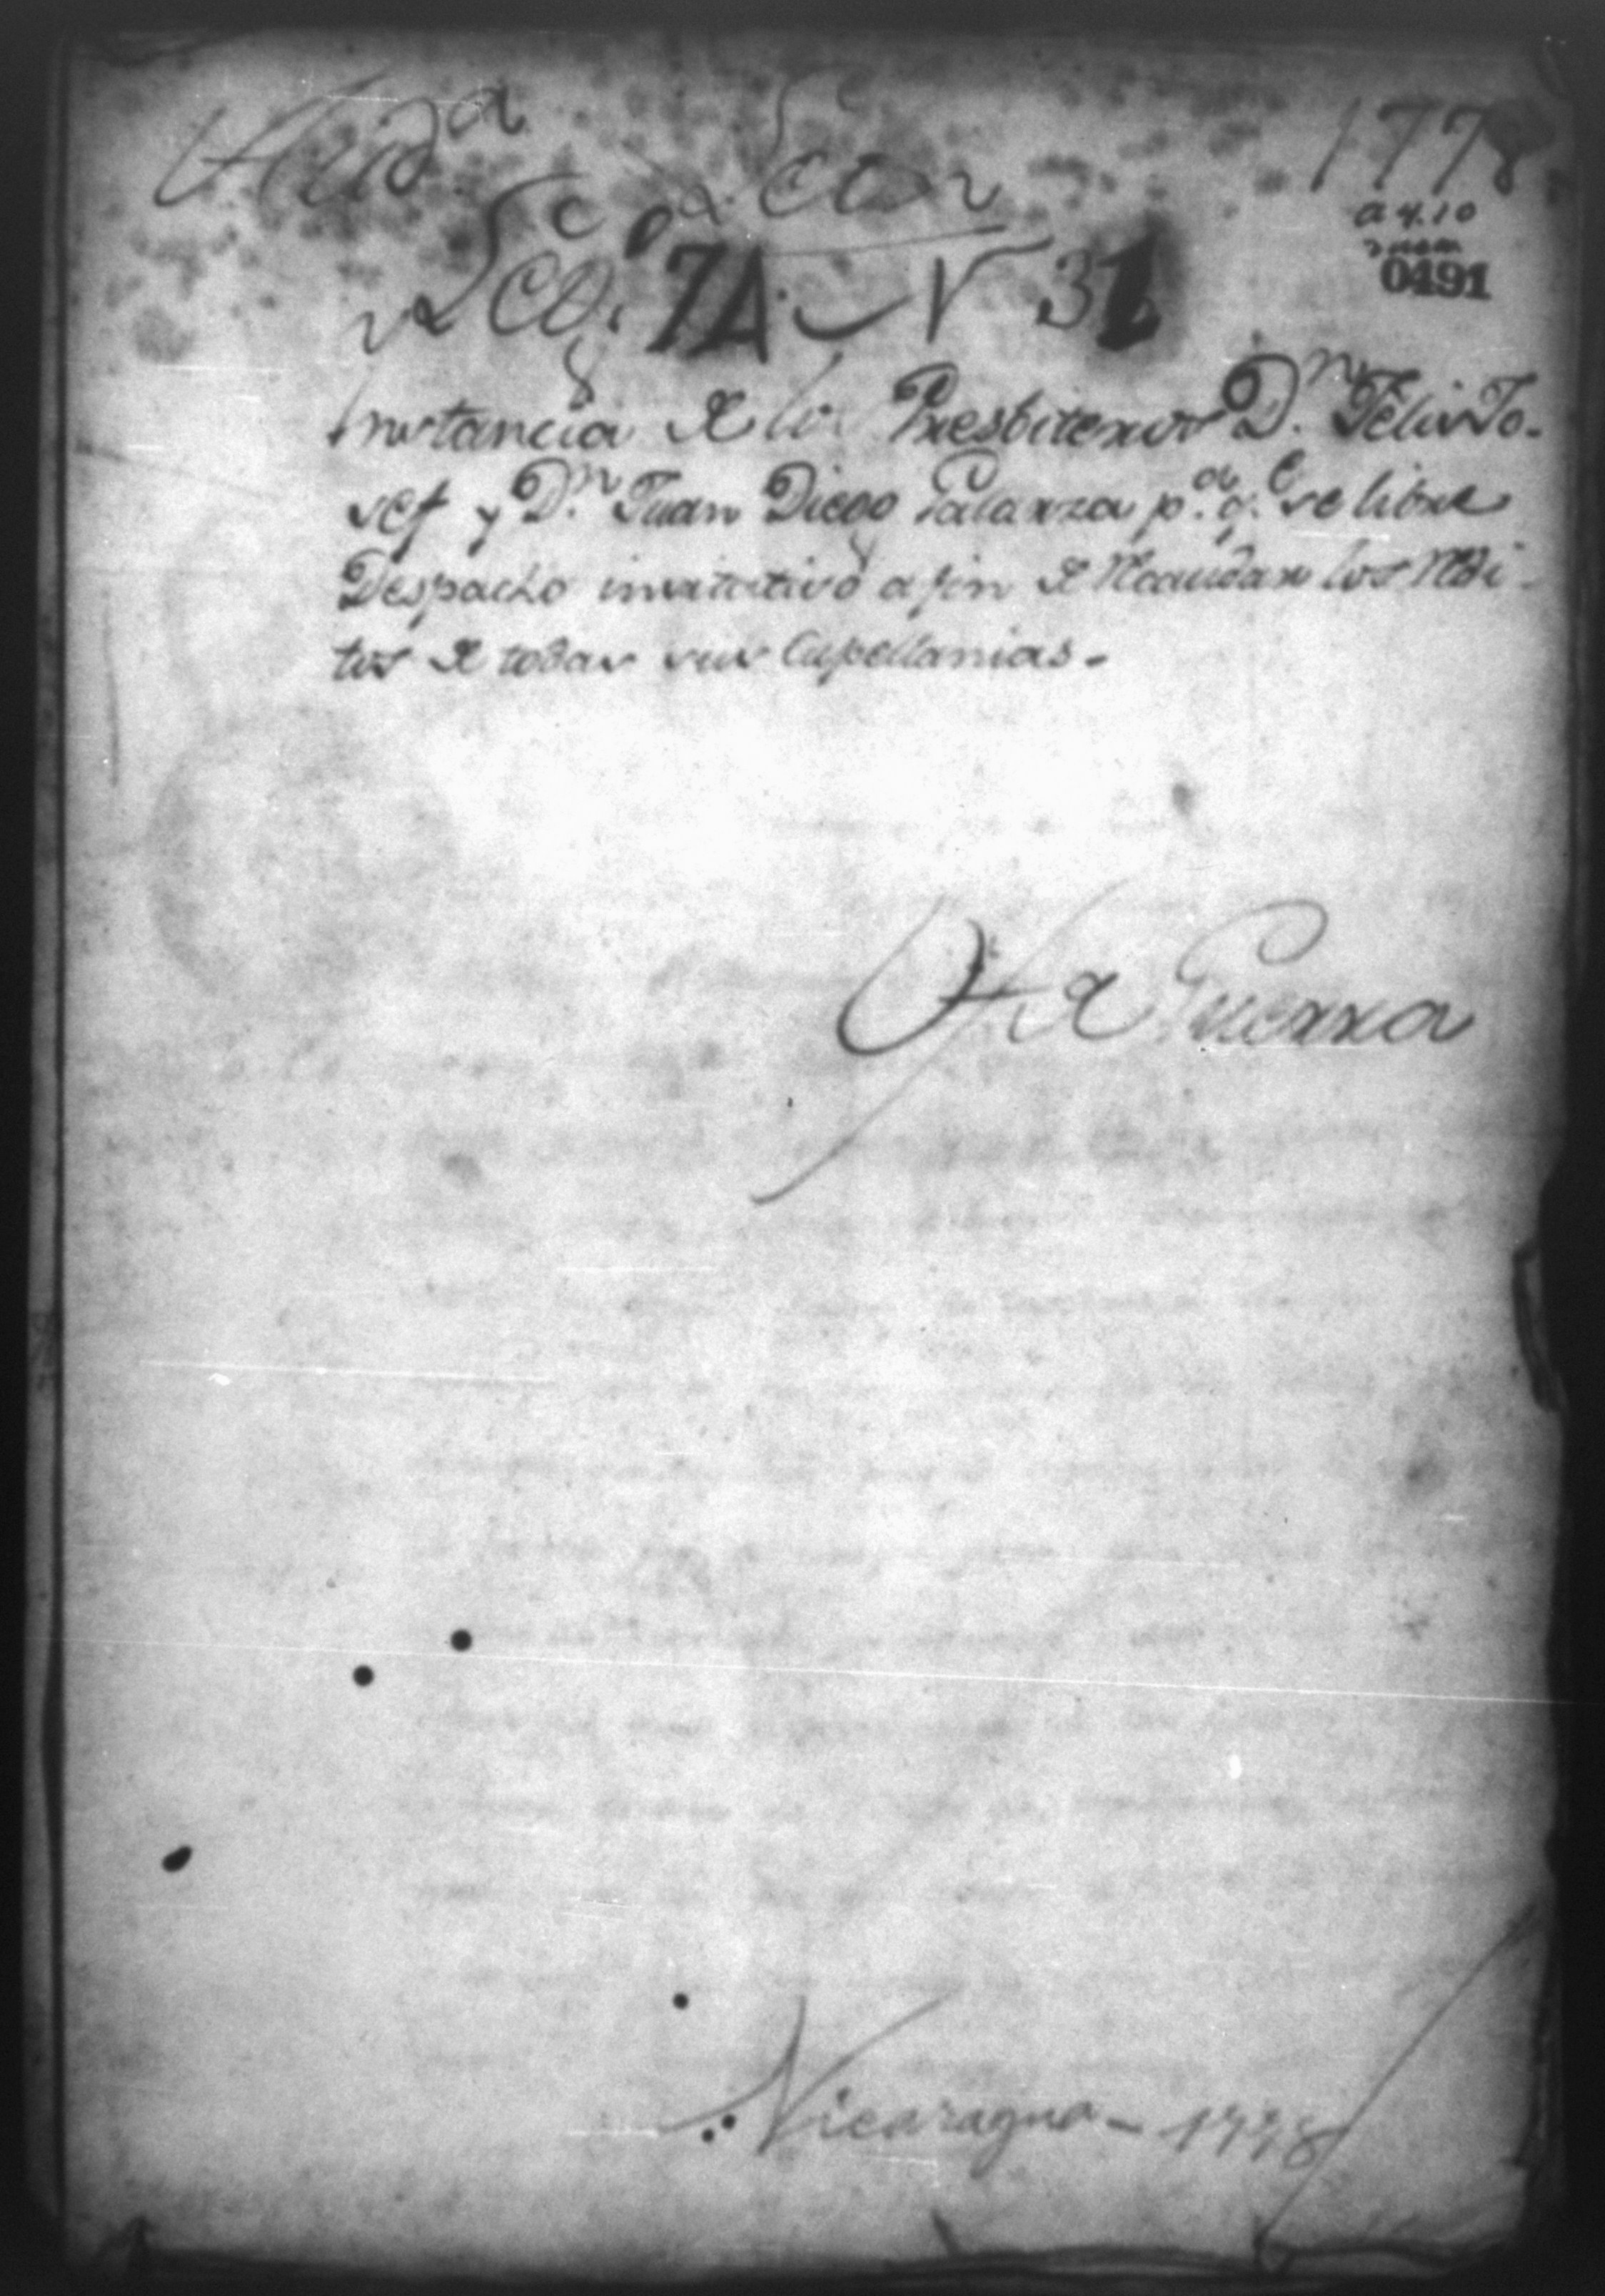 Aud.a de Leon 1778
A 4.10
0491
Leg.o 7A N 31
Instancia de los Presbiteros D.n Felis Jo-
sef y D.n Juan Diego Palarza p.a q.e se libre
Despacho invitativo a fin de Recaudar los Redi-
tos de todas sus Capellanias.
Guerra
Nicaragua - 1778